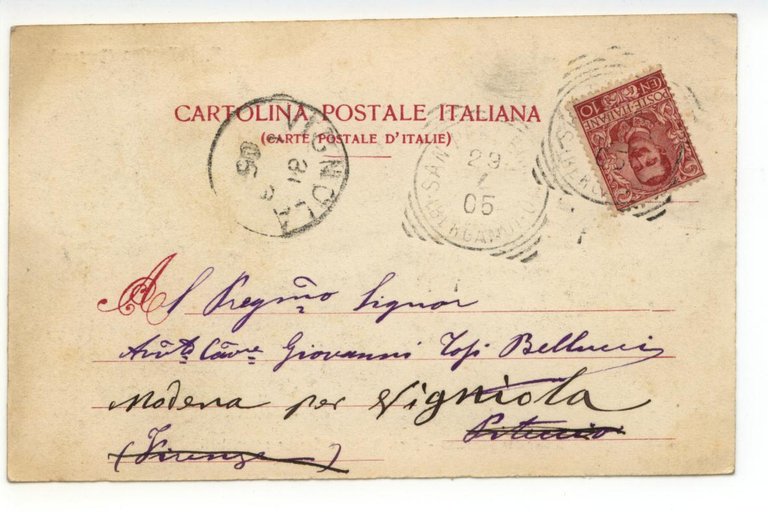 CARTOLINA POSTALE ITALIANA
(CARTE POSTALE D'ITALIE)
VIGNOLA
05
29
05
(BERGAMO)
POSTE ITALIANE
CEN. 10
Al Pregmo Signor
Avvto Cavre Giovanni Tosi Bellucci
Modena per Vigniola
(Firenze)